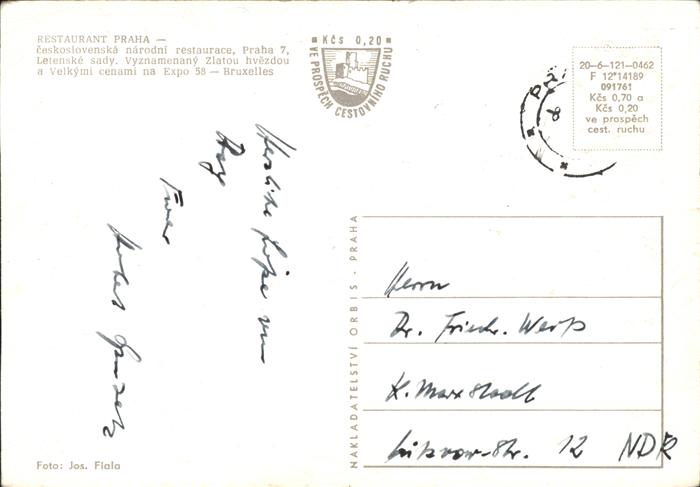 RESTAURANT PRAHA —
československá národní restaurace, Praha 7,
Letenské sady. Vyznamenaný Zlatou hvězdou
a Velkými cenami na Expo 58 — Bruxelles
Kčs 0,20
VE PROSPĚCH CESTOVNÍHO RUCHU
20-6-121-0462
F 12*14189
091761
Kčs 0,70 a
Kčs 0,20
ve prospěch
cest. ruchu
Herzliche Grüße von
Euer
NAKLADATELSTVÍ ORBIS - PRAHA
Herrn
Dr. Friedr. Weiß
K. Marx Stadt
Lützow-Str. 12 NDR
Foto: Jos. Fiala